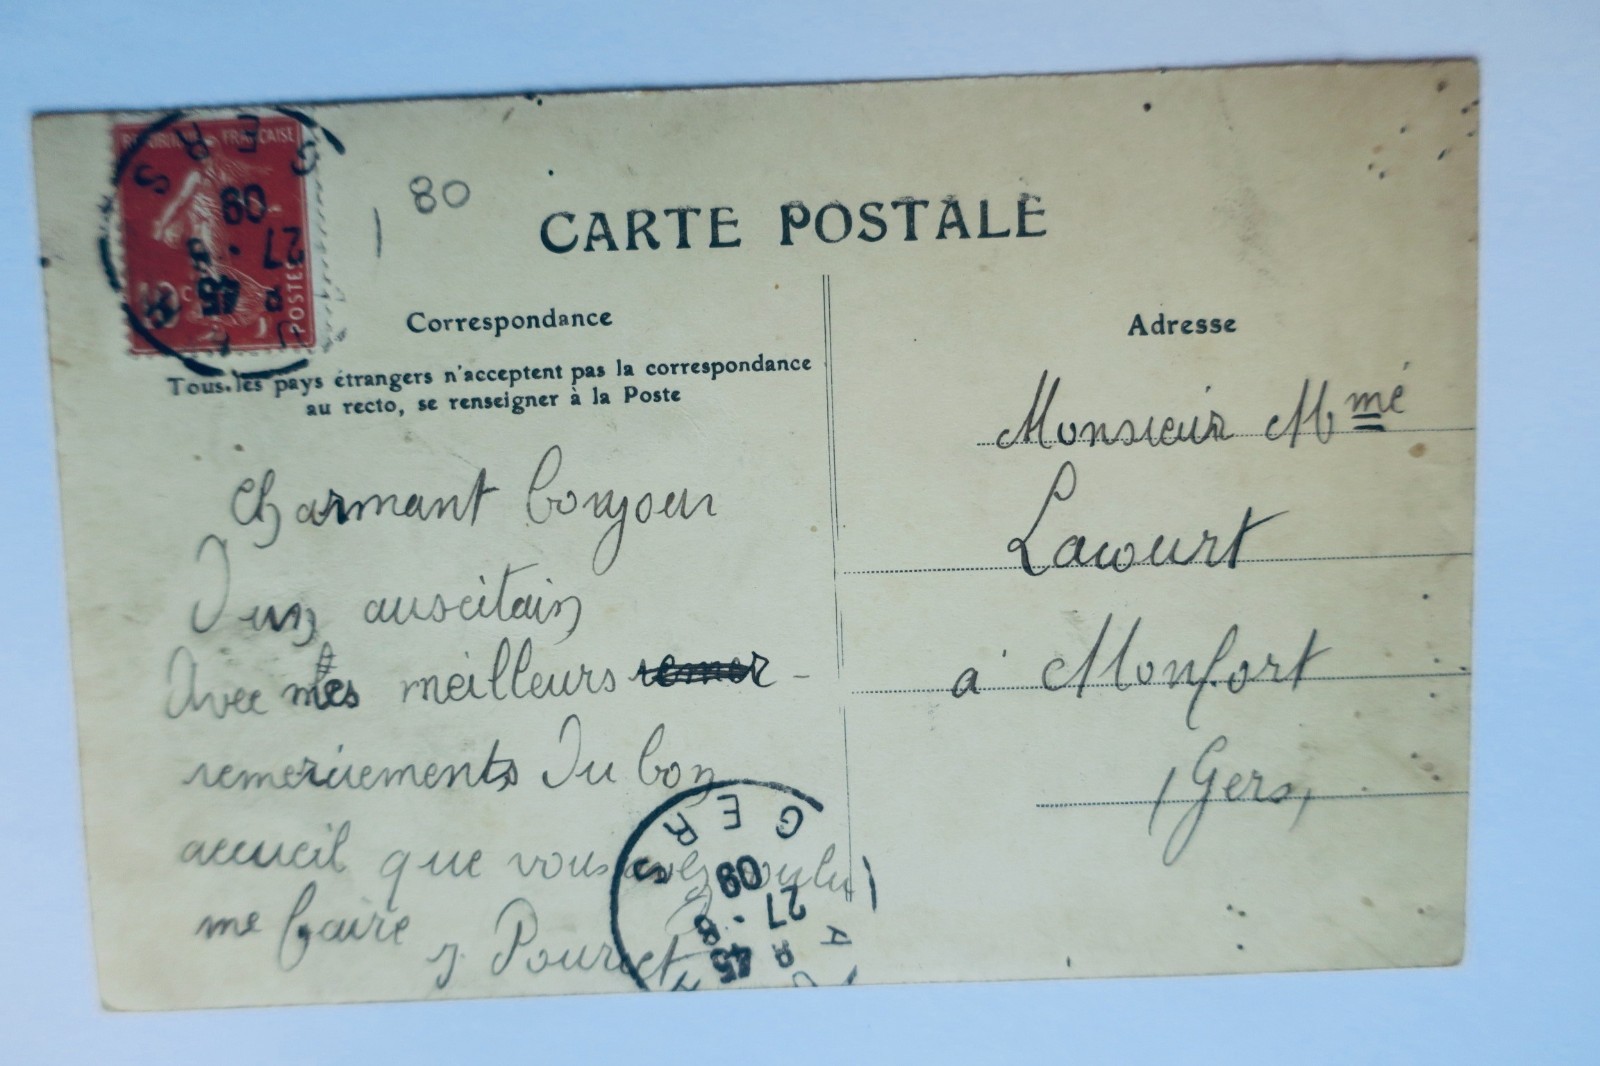 RÉPUBLIQUE FRANÇAISE
10 c
POSTES
GERS
27 - 3
09
80
CARTE POSTALE
Correspondance
Tous les pays étrangers n'acceptent pas la correspondance
au recto, se renseigner à la Poste
Charmant bonjour
D'un auscitain
Avec mes meilleurs remer -
remerciements Du bon
accueil que vous avez voulu
me faire
J. Pourcet
AUCH
GERS
45
27 - 3
09
Adresse
Monsieur Mmé
Lacourt
à Monfort
(Gers)